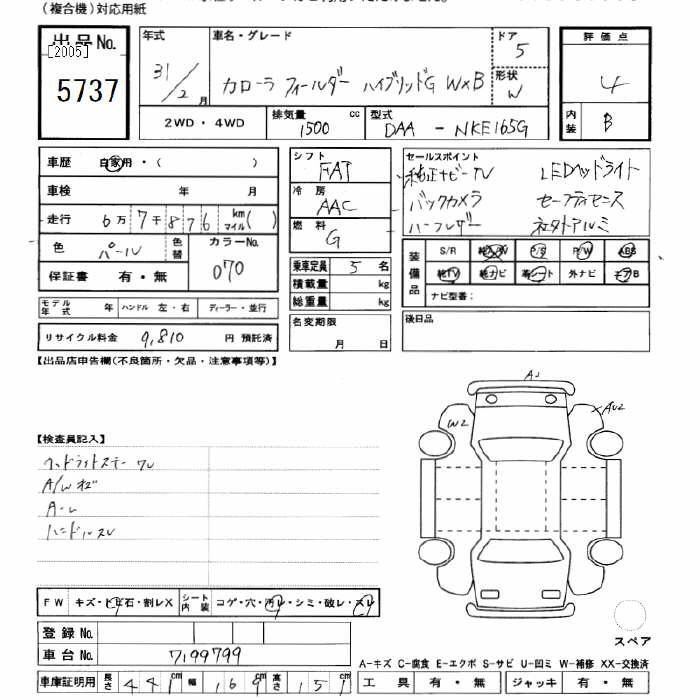 (複合機)対応用紙
出品No.
[2005]
5737
年式 31/2 月
車名・グレード
カローラ フィールダー ハイブリッドG W×B
ドア 5
形状 W
評価点 4
内装 B
2WD・4WD
排気量 1500 cc
型式 DAA - NKE165G
車歴 自家用・( )
車検 年 月
走行 6万 7千 8 7 6 km マイル( )
色 パール 色替
カラーNo. 070
保証書 有・無
シフト FAT
冷房 AAC
燃料 G
乗車定員 5 名
積載量 kg
総重量 kg
名変期限 月 日
セールスポイント
純正ナビ-TV LEDヘッドライト
バックカメラ セーフティセンス
ハーフレザー 社外アルミ
装備品
S/R 純AW P/S P/W ABS
純TV 純ナビ 革シート 外ナビ エアB
ナビ型番:
後日品
モデル年式 年 ハンドル 左・右 ディーラー・並行
リサイクル料金 9,810 円 預託済
【出品店申告欄(不良箇所・欠品・注意事項等)】
【検査員記入】
A/W キズ
ハンドルスレ
A1
W2
AU2
FW キズ・トビ石・割レX シート内装 コゲ・穴・汚レ・シミ・破レ・スレ
登録No.
車台No. 7199799
スペア
A-キズ C-腐食 E-エクボ S-サビ U-凹ミ W-補修 XX-交換済
車庫証明用 長さ 441 幅 169 高さ 151
工具 有・無 ジャッキ 有・無